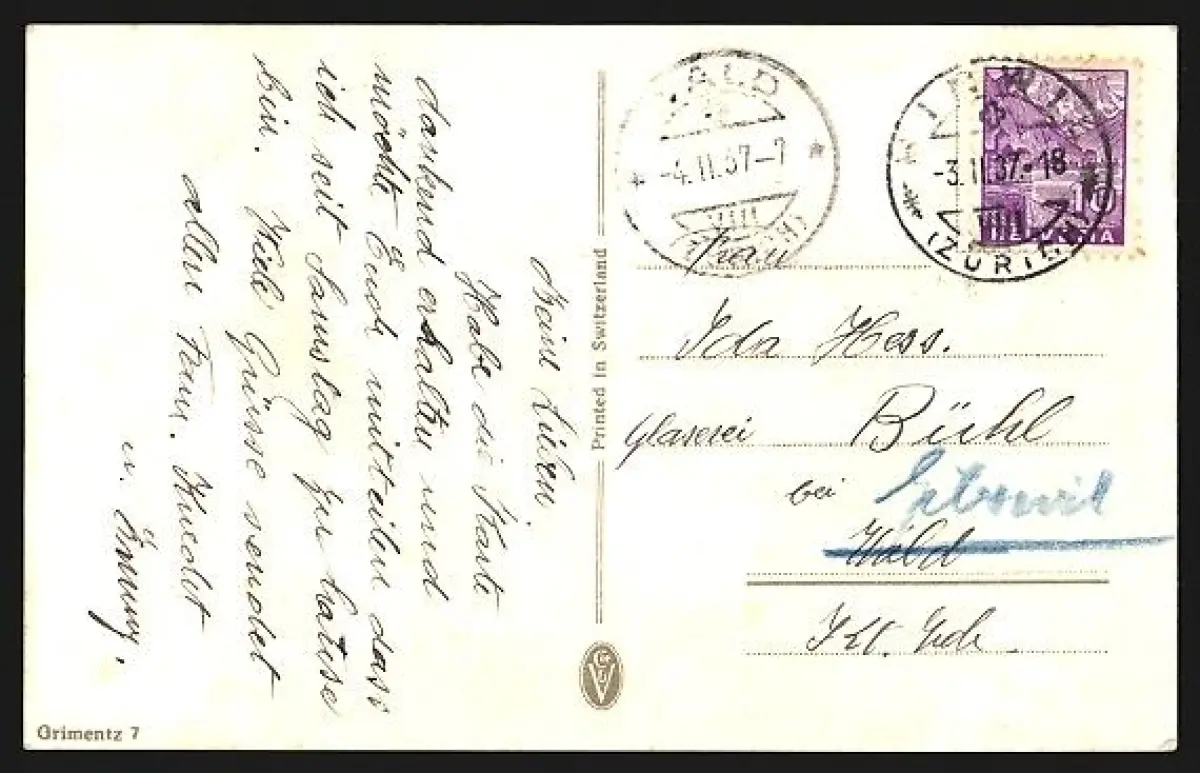 Meine Lieben,
Habe die Karte
dankend erhalten und
möchte Euch mitteilen dass
ich seit Samstag zu hause
bin. Viele Grüsse sendet
allen Fam. Knecht
u. Emmy.
Printed in Switzerland
WALD
-4.II.37-7
VIII
(ZÜRICH)
-3.II.37.-18
VIII
(ZÜRICH)
10
HELVETIA
Frau
Ida Hess.
Glaserei Bühl
bei
Wald
Kt. Zch.
Grimentz 7